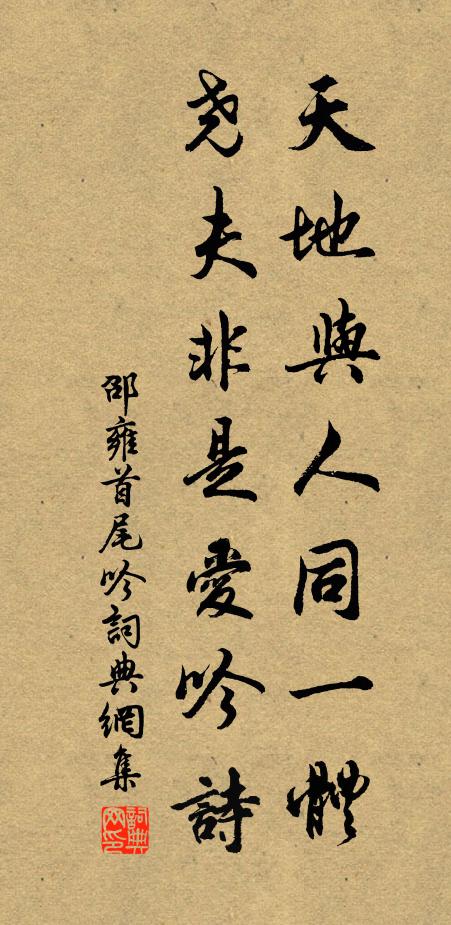 天地與人同一體
堯夫非是愛吟詩
邵雍首尾吟詞典網集
詞典
网印